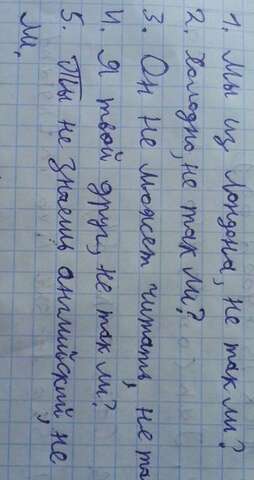 1. Мы из Лондона, не так ли?
2. Холодно, не так ли?
3. Он не может читать, не та
4. Я твой друг, не так ли?
5. Ты не знаешь английский, не